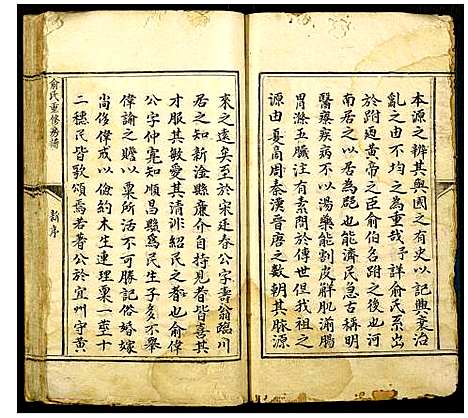 本源之辨其與國之有史以記興衰治
亂之由不均之為重哉予詳俞氏系出
於跗趙黃帝之臣俞伯名跗之後也河
南居之以名為慰也能濟民急古稱明
醫療疾病不以湯藥能割皮解肌湔腸
胃滌五臟素問所於傳世但我祖之
源由夏商周秦漢晉唐之數朝其脉源
來之遠矣至於宋廷春公字壽翁臨川
居之知新淦縣亷介自持見者皆喜其
才服其敏愛其清洪紹民之者也俞偉
公字仲寬知順昌縣為民生子多不舉
偉諭之贍以粟所活不可勝記俗婚嫁
尚侈偉戒以儉約木生連理粟一莖十
二穗民皆歌頌焉若著公於宜州守黄
俞氏重修房譜
新序